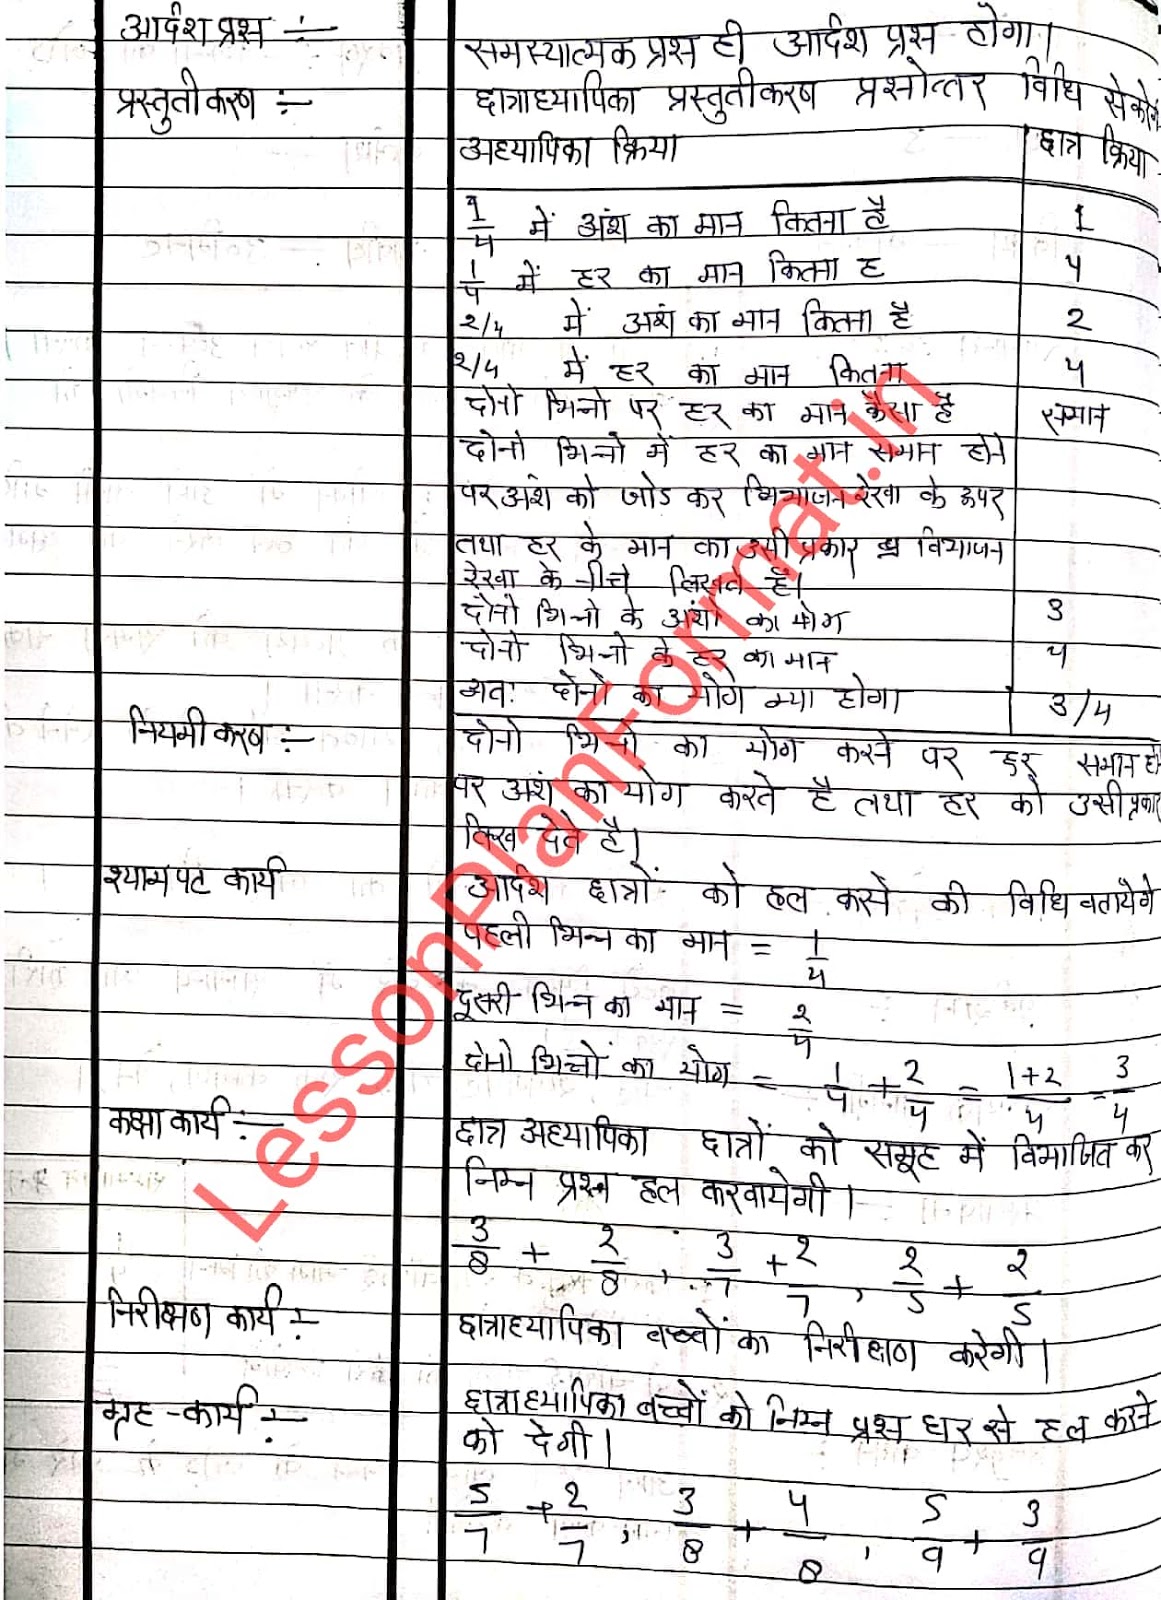 आर्दश प्रश्न :- समस्यात्मक प्रश्न ही आर्दश प्रश्न होगा।
प्रस्तुतीकरण :- छात्राध्यापिका प्रस्तुतीकरण प्रश्नोत्तर विधि से
अध्यापिका क्रिया छात्र क्रिया
1/4 में अंश का मान कितना है 1
1/4 में हर का मान कितना ह 4
2/4 में अशं का मान कितना है 2
2/4 में हर का मान कितना 4
दोनो भिन्नो पर हर का मान कैसा है समान
दोनो भिन्नो में हर का मान समान होने
पर अंश को जोड कर विभाजन रेखा के ऊपर
तथा हर के मान का उसी प्रकार विभाजन
रेखा के नीचे लिखते है।
दोनो भिन्नो के अंशो का योग 3
दोनो भिन्नो के हर का मान 4
अतः दोनो का योग क्या होगा 3/4
नियमीकरण :- दोनो भिन्नो का योग करने पर हर समान हो
पर अशं का योग करते है तथा हर को उसी प्रकार
लिख देते है।
श्यामपट कार्य आर्दश छात्रों को हल करने की विधि बतायेगे
पहली भिन्न का मान = 1/4
दूसरी भिन्न का मान = 2/4
दोनो भिन्नों का योग = 1/4 + 2/4 = 1+2/4 = 3/4
कक्षा कार्य :- छात्र अध्यापिका छात्रों को समूह में विभाजित कर
निम्न प्रश्न हल करवायेगी।
3/8 + 2/8, 3/7 + 2/7, 2/5 + 2/5
निरीक्षण कार्य :- छात्राध्यापिका बच्चों का निरीक्षण करेगी।
गृह-कार्य :- छात्राध्यापिका बच्चों को निम्न प्रश्न घर से हल करने
को देगी।
5/7 + 2/7, 3/8 + 4/8, 5/9 + 3/9
LessonPlanFormat.in